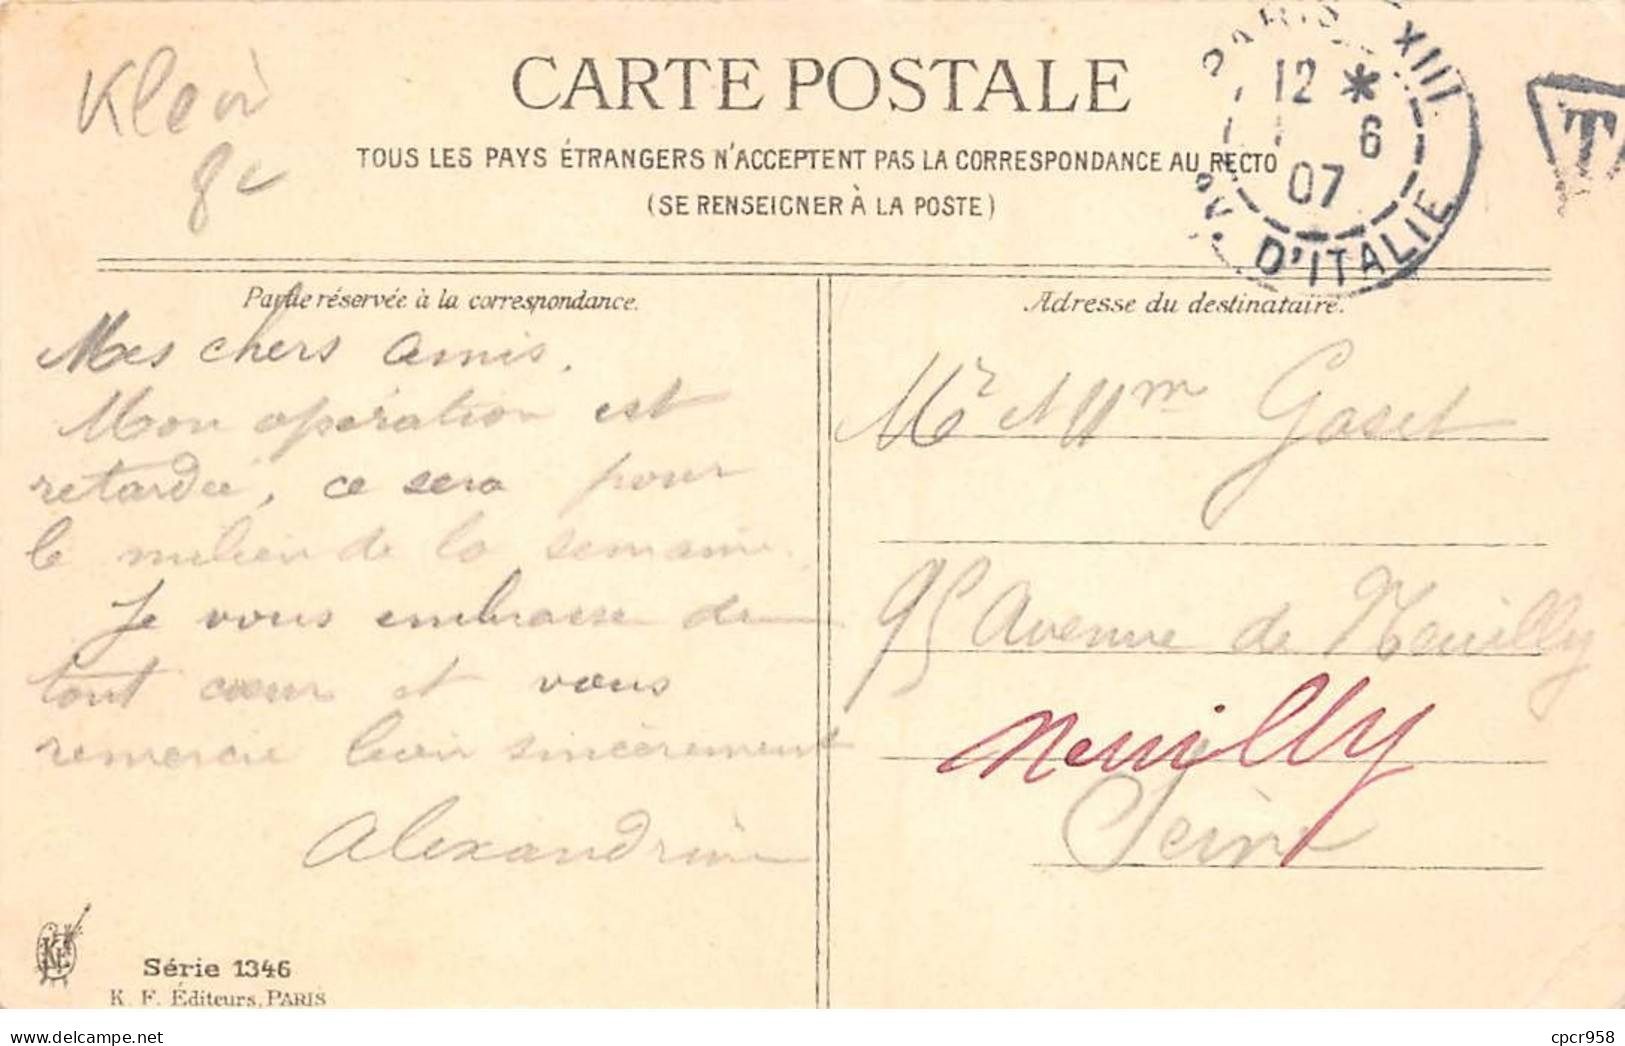 8c
CARTE POSTALE
TOUS LES PAYS ÉTRANGERS N'ACCEPTENT PAS LA CORRESPONDANCE AU RECTO
(SE RENSEIGNER À LA POSTE)
PARIS XIII
12 *
6
07
AV. D'ITALIE
T
Partie réservée à la correspondance.
Mes chers amis,
Mon opération est
retardée, ce sera pour
le milieu de la semaine.
Je vous embrasse de
tout cœur et vous
remercie bien sincèrement
Alexandrine
Série 1346
K. F. Éditeurs, PARIS
Adresse du destinataire.
Mr et Mme Gaset
95 Avenue de Neuilly
Neuilly
Seine
cpcr958